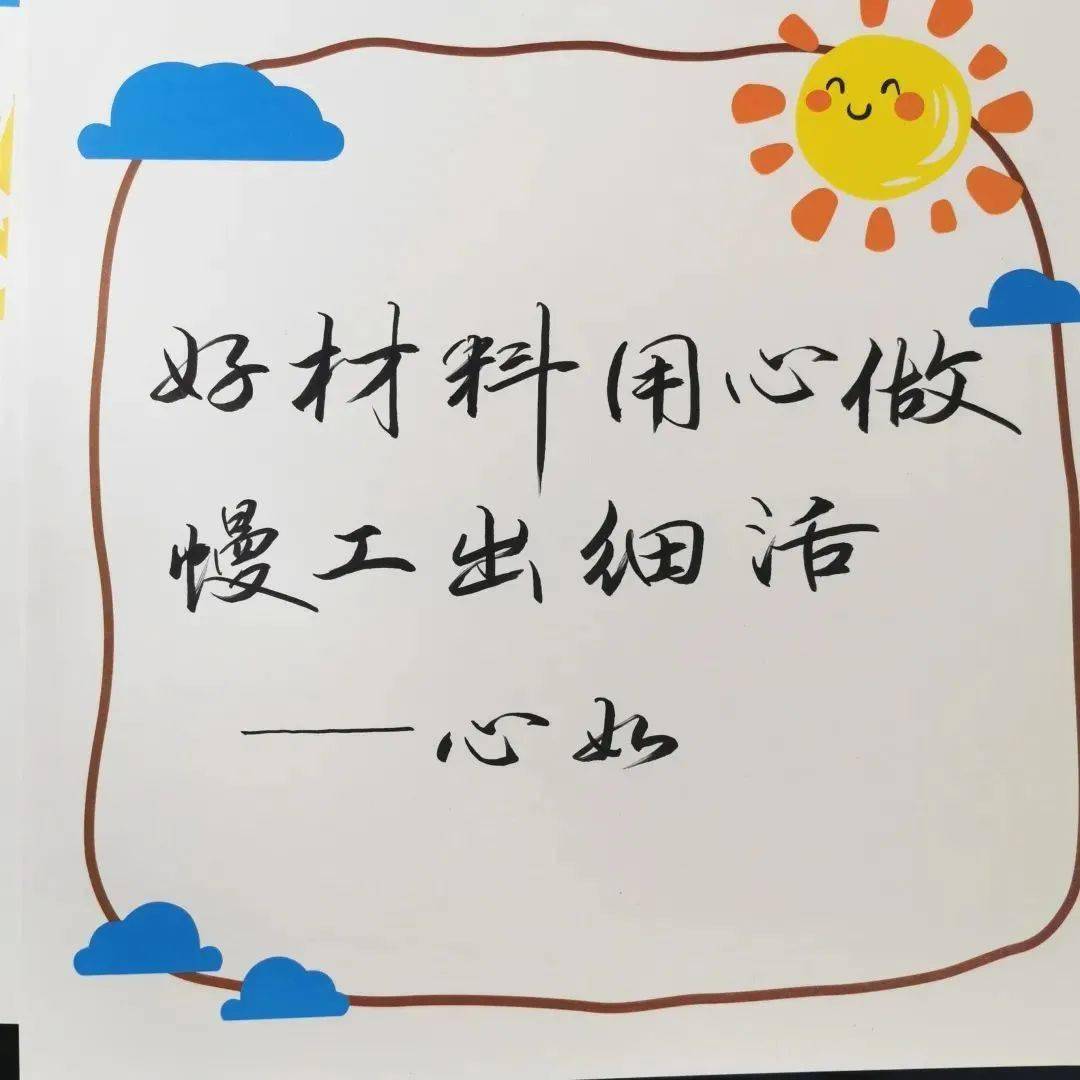 好材料用心做
慢工出细活
——心如